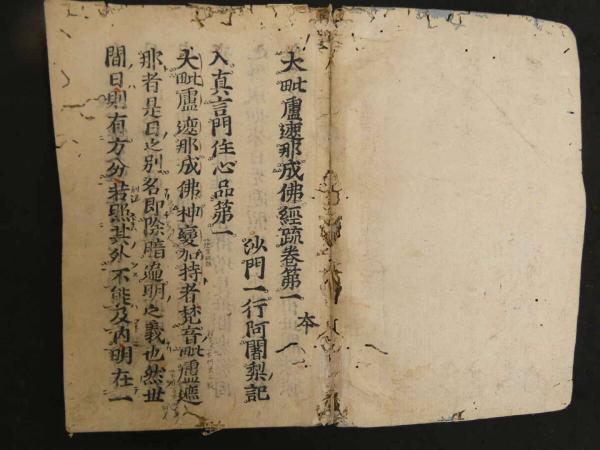 大毗盧遮那成佛經疏卷第一 本
沙門一行阿闍梨記
入真言門住心品第一
大毗盧遮那成佛神變加持者梵音毗盧遮
那者是日之別名即除暗遍明之義也然世
間日則有方分若照其外不能及内明在一